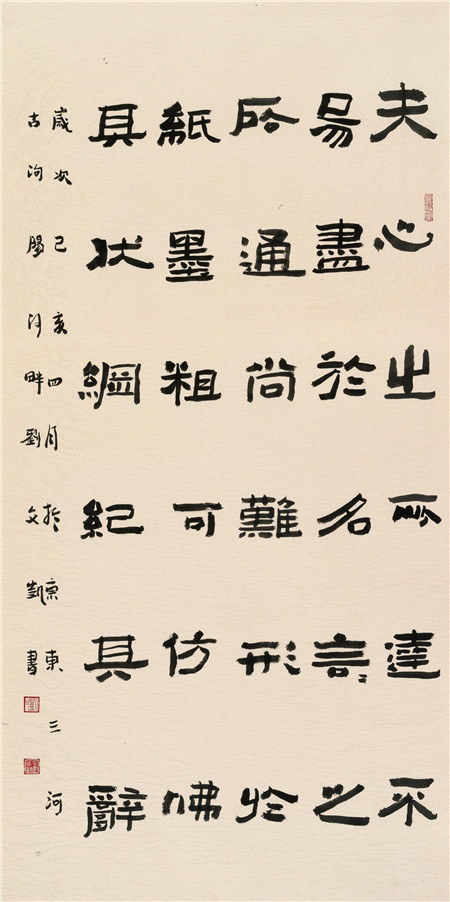 夫心之所達不
易盡於名言〻之
所通尚難形於
紙墨粗可仿佛
其狀綱紀其辭
歲次己亥四月於京東三河
古泃陽河畔劉文凱書